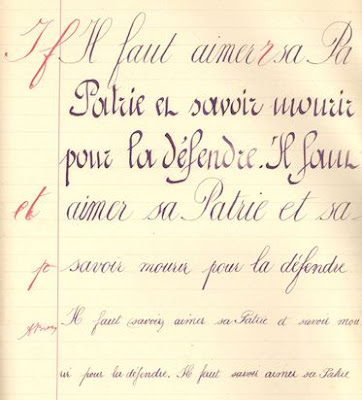 If Il faut aimer r sa Pa
Patrie et savoir mourir
pour la défendre. Il faut
et aimer sa Patrie et sa
p savoir mourir pour la défendre
Il faut (savoir) aimer sa Patrie et savoir mou
rir pour la défendre. Il faut savoir aimer sa Patrie